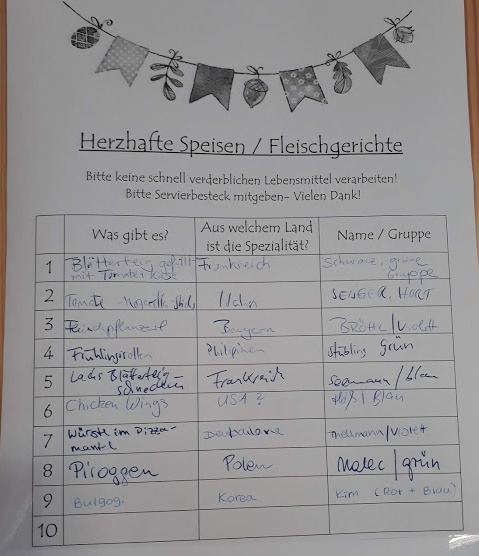 Herzhafte Speisen / Fleischgerichte
Bitte keine schnell verderblichen Lebensmittel verarbeiten!
Bitte Servierbesteck mitgeben- Vielen Dank!
Was gibt es? Aus welchem Land ist die Spezialität? Name / Gruppe
1 Blätterteig gefüllt mit Tomate Käse Frankreich Schwarz, grüne Gruppe
2 Tomate - Italien SENGER, HORT
3 Fleischpflanzerl Bayern BRÖTTL / Violett
4 Frühlingsrollen Philipinen Grün
5 Lachs Blätterteig- schnecken Frankreich Seemann / blau
6 Chicken Wings USA ? / Blau
7 Würstl im Pizza- mantel / Violett
8 Piroggen Polen Malec / grün
9 Bulgogi Korea Kim (Rot + Blau)
10